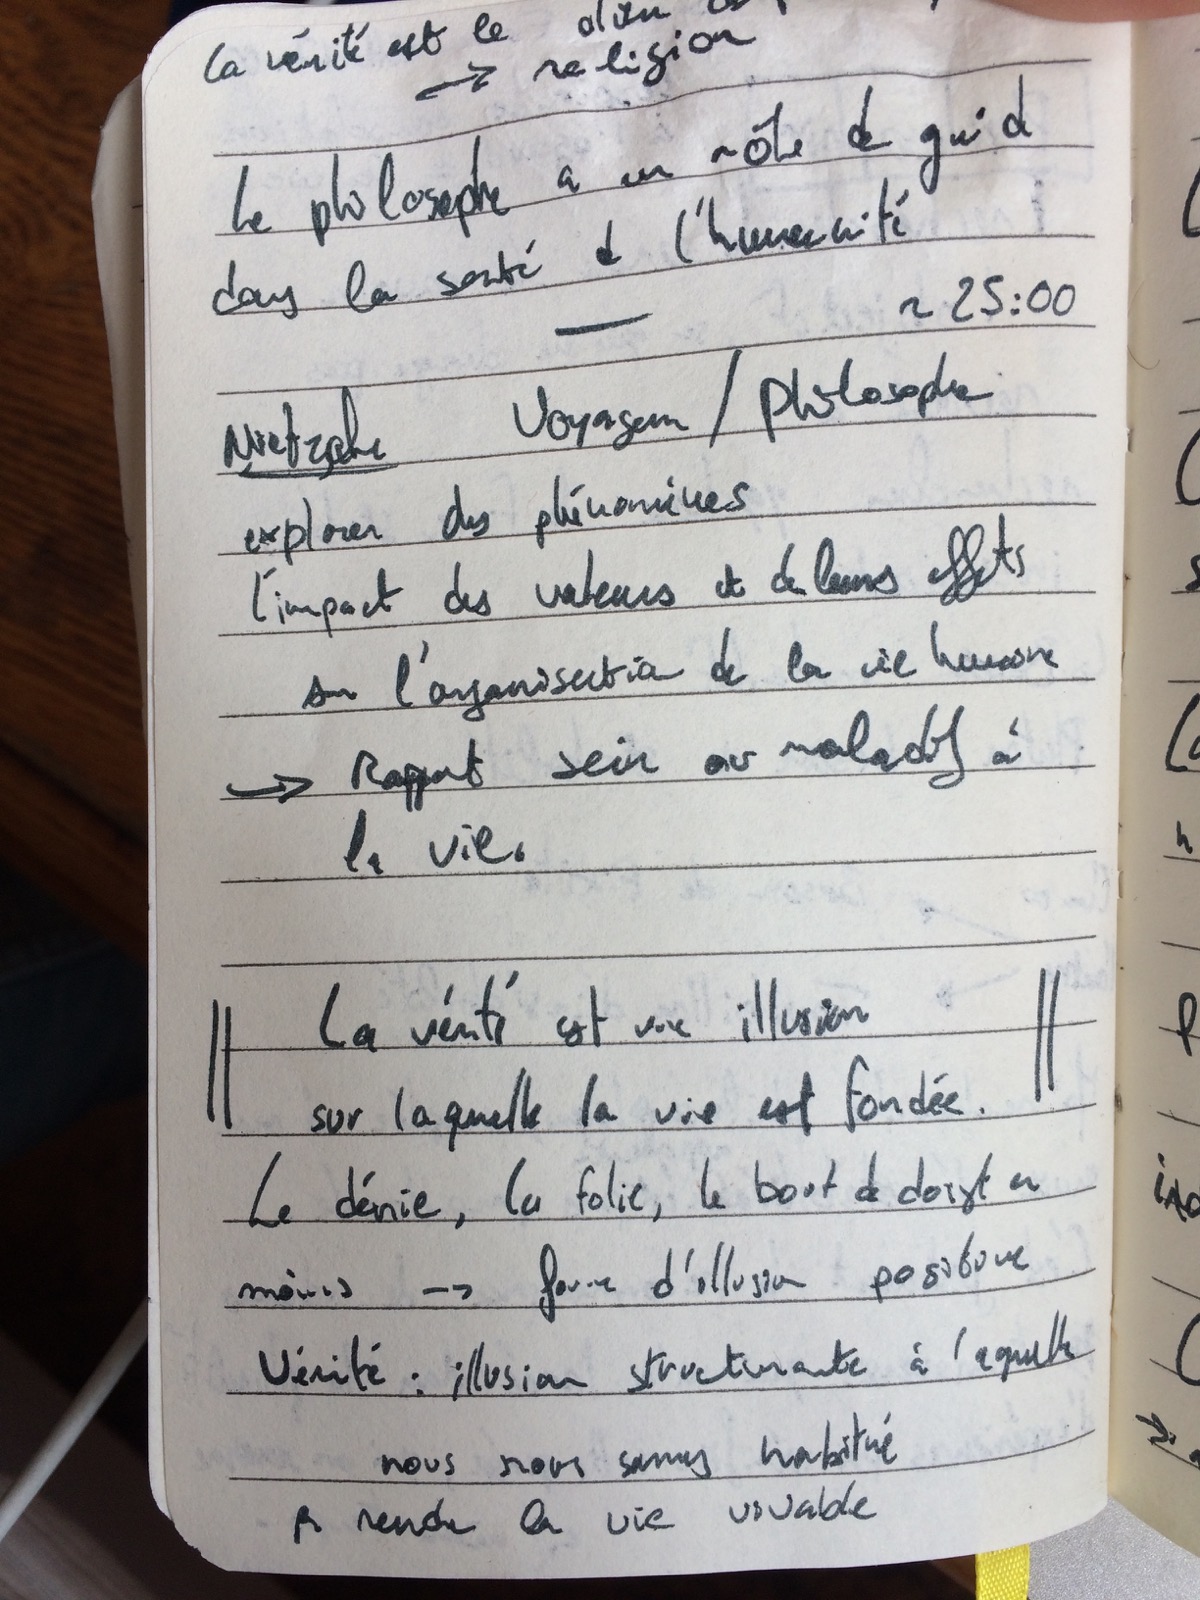 la vérité est le
→ religion
Le philosophe a un rôle de guid
dans la santé d l'humanité
~ 25:00
Nietzsche Voyageur / philosophe
explorer des phénomènes
l'impact des valeurs et de leurs effets
sur l'organisation de la vie humaine
→ Rapport sein ou maladif à
la vie.
La vérité est une illusion
sur laquelle la vie est fondée.
Le dénie, la folie, le bout de doigt en
moins → forme d'illusion positive
Vérité : illusion structurante à laquelle
nous nous sommes habitué
rendre la vie vivable